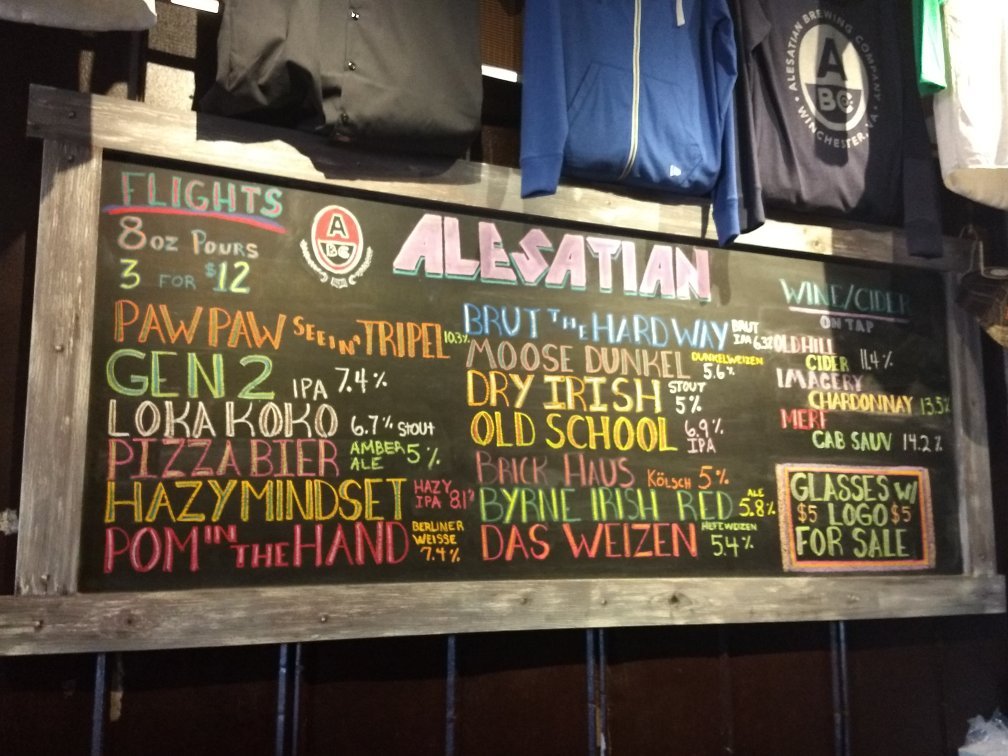 ALESATIAN BREWING COMPANY
A
BC
WINCHESTER, VA
FLIGHTS
8oz POURS
3 FOR $12
A
BC
ALESATIAN
PAW PAW SEEIN' TRIPEL 10.3%
GEN 2 IPA 7.4%
LOKA KOKO 6.7% STOUT
PIZZA BIER AMBER ALE 5%
HAZY MINDSET HAZY IPA 8.1%
POM IN THE HAND BERLINER WEISSE 7.4%
BRUT THE HARD WAY BRUT IPA 6.3%
MOOSE DUNKEL DUNKELWEIZEN 5.6%
DRY IRISH STOUT 5%
OLD SCHOOL 6.9% IPA
BRICK HAUS KÖLSCH 5%
BYRNE IRISH RED ALE 5.8%
DAS WEIZEN HEFEWEIZEN 5.4%
WINE/CIDER
ON TAP
OLD HILL
CIDER 11.4%
IMAGERY
CHARDONNAY 13.5%
MERF
CAB SAUV 14.2%
GLASSES W/
$5 LOGO $5
FOR SALE